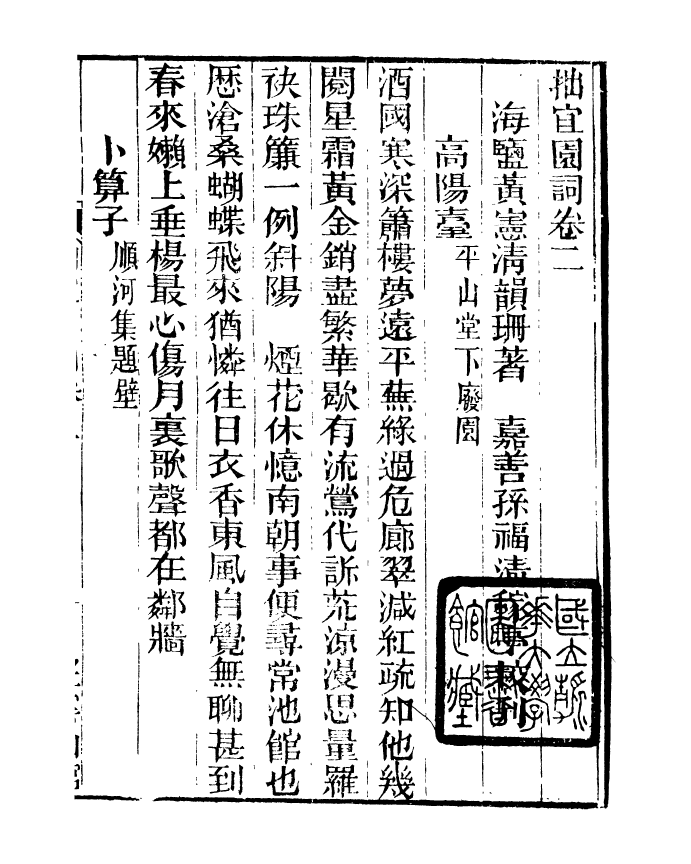 拙宜園詞卷二
海鹽黃憲清韻珊著　嘉善孫福清校刊
高陽臺 平山堂下廢園
酒國寒深簫樓夢遠平蕪綠過危廊翠減紅疏知他幾
閱星霜黃金銷盡繁華歇有流鶯代訴荒涼漫思量羅
袂珠簾一例斜陽　煙花休憶南朝事便尋常池館也
歷滄桑蝴蝶飛來猶憐往日衣香東風自覺無聊甚到
春來嬾上垂楊最心傷月裏歌聲都在鄰牆
卜算子 順河集題壁
國立清華大學圖書館藏